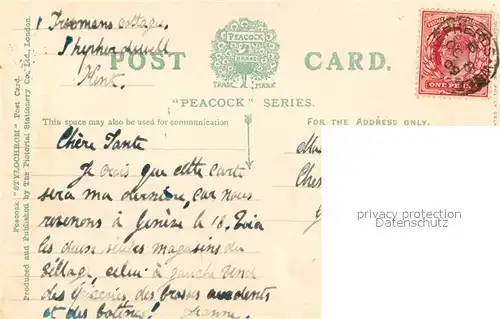 1 Freemans Cottages
Shepherdswell
Kent.
POST CARD.
PEACOCK
TRADE MARK
"PEACOCK" SERIES.
This space may also be used for communication
FOR THE ADDRESS ONLY.
Peacock "STYLOCHROM" Post Card.
Produced and Published by The Pictorial Stationery Co., Ltd., London.
ONE PENNY
Chère Tante
Je crois que cette carte
sera ma dernière, car nous
revenons à Genève le 18. Voici
les deux seules magasins du
village, celui à gauche vend
des épiceries, des brosses aux dents
et des bottines!
Ches
privacy protection
Datenschutz